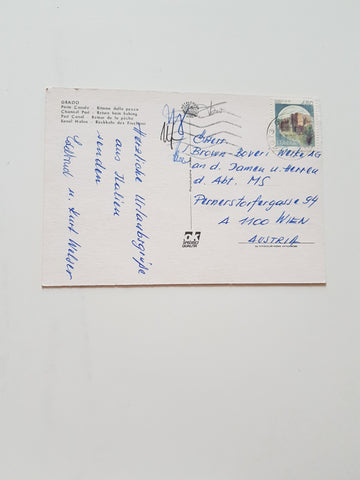 GRADO
Porto Canale - Ritorno dalla pesca
Channel Port - Return from fishing
Port Canal - Retour de la pêche
Kanal Hafen - Rückkehr des Fischers
Herzliche Urlaubsgrüße
aus Italien
senden
Gertrud u. Kurt Weber
Brown-Boveri Werke AG
an d. Damen u. Herren
d. Abt. MS
Pernerstorfergasse 94
A 1100 WIEN
AUSTRIA